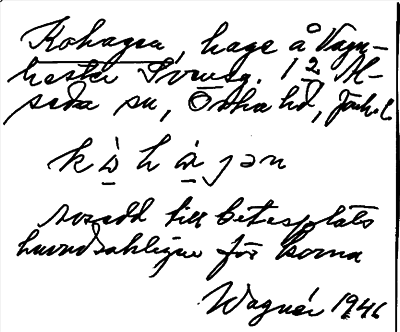 Kohagen, hage å Vagn-
hester Svensg. 1 2 Al-
seda sn, Östra hd, Jönk. l.
k ò h à j ə n
avsedd till betesplats
huvudsakligen för korna
Wagnér 1946